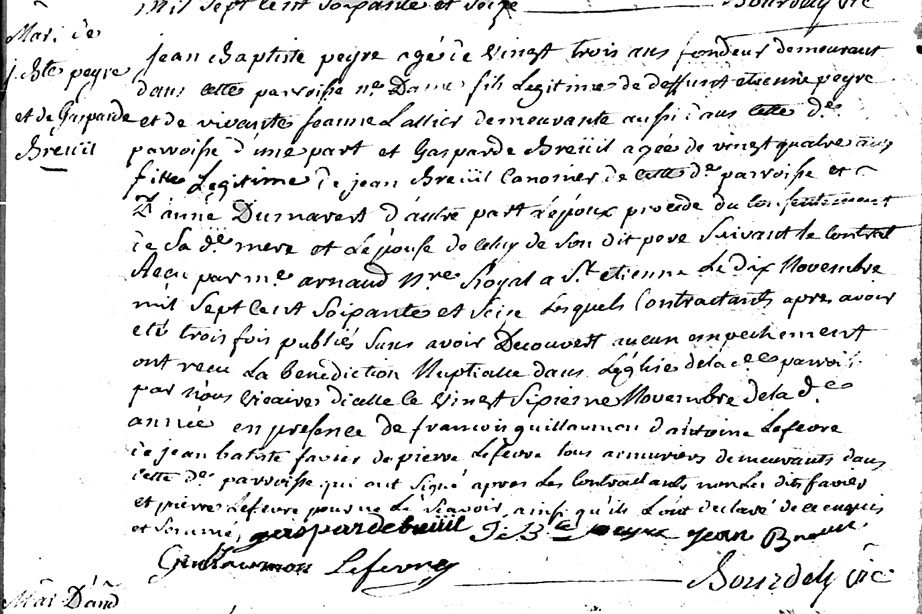 mil sept cent soixante et seize Bourdely vic
Mari. de
j. bte peyre
et de Gasparde
Breüil
jean baptiste peyre agé de vingt trois ans fondeur demeurant
dans cette parroisse ne. Dame fils Legitime de deffunt etienne peyre
et de vivante jeanne Lallier demeurante aussi dans cette de.
parroisse d'une part et Gasparde Breüil agée de vingt quatre ans
fille Legitime de jean Breüil Canonier de cette de. parroisse et
d'anne Dumarest d'autre part Lepoux procede du consentement
de Sa de. mere et Lepouse de celuy de Son dit pere Suivant le contrat
Recu par me. arnaud nre. Royal a St. etienne Le dix Novembre
mil Sept Cent Soixante et Seize Lesquels Contractants apres avoir
eté trois fois publiés Sans avoir Decouvert aucun empechement
ont recu La benediction Nuptialle dans L'eglise de la de. parroi:
par nous vicaires d'icelle le vingt Sixieme Novembre de la de.
année en presence de francois guillaumon d'antoine Lefevre
de jean batiste favier de pierre Lefevre tous armuriers demeurants dans
cette de. parroisse qui ont Signé apres Les Contractants non Les dits favier
et pierre Lefevre pour ne Le Scavoir, ainsi qu'ils L'ont declaré de ce enquis
et Sommé, gaspardebreüil J. B.te peyre jean Breüil
Guillaumon Lefevre Bourdely vic
Mari. D'and